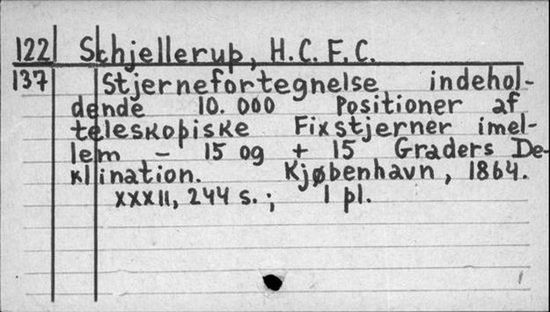 122 Schjellerup, H.C.F.C.
137 Stjernefortegnelse indehol-
dende 10.000 Positioner af
teleskopiske Fixstjerner imel-
lem - 15 og + 15 Graders De-
klination. Kjøbenhavn, 1864.
XXXII, 244 s.; 1 pl.
1